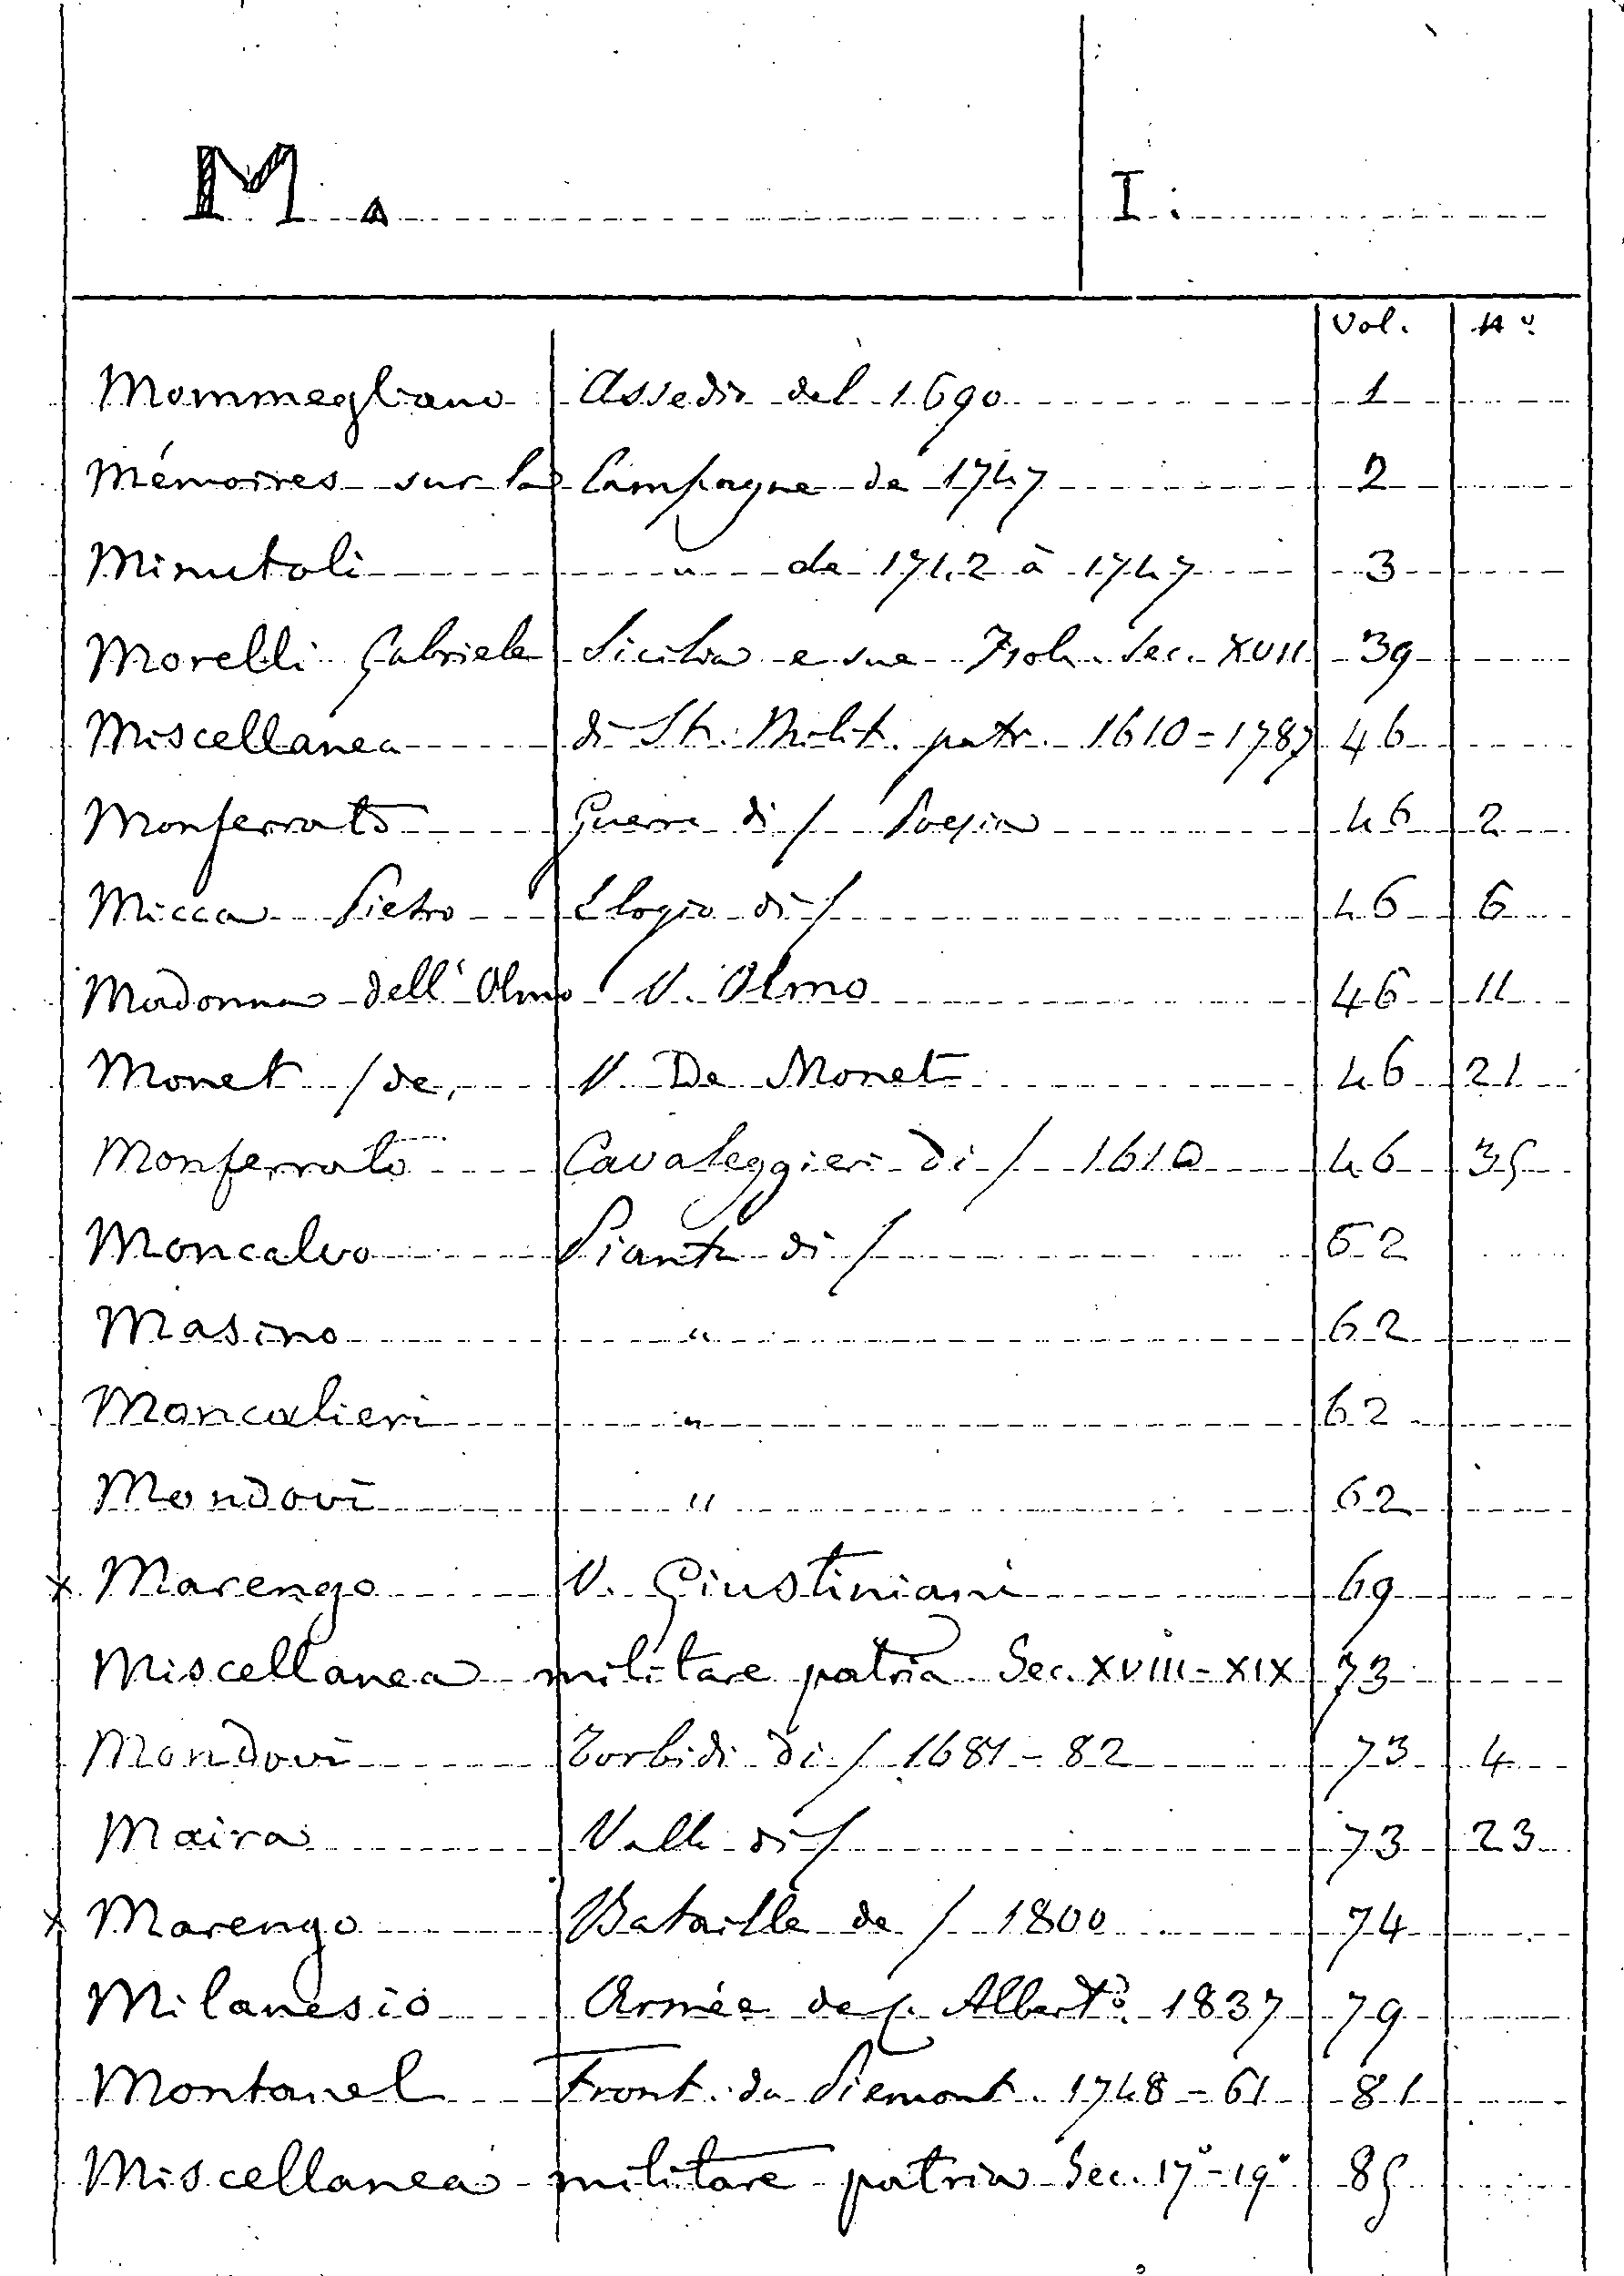 M. I.
Vol. N°
Mommegliano Assedio del 1690 1
Mémoires sur la Campagne de 1747 2
Minutoli " de 1742 à 1747 3
Morelli Gabriele Sicilia e sue Isole Sec. XVII 39
Miscellanea di St. Milit. patr. 1610=1787 46
Monferrato Guerra di / Poesia 46 2
Micca Pietro Elogio di / 46 6
Madonna dell'Olmo V. Olmo 46 11
Monet /de, V. De Monet 46 21
Monferrato Cavaleggieri di / 1610 46 35
Moncalvo Pianta di / 62
Masino " 62
Moncalieri " 62
Mondovì " 62
x Marengo V. Giustiniani 69
Miscellanea militare patria Sec. XVIII-XIX 73
Mondovì Torbidi di / 1681-82 73 4
Maira Valle di / 73 23
x Marengo Bataille de / 1800 74
Milanesio Armée de C. Albert 1837 79
Montanel Front. du Piemont. 1748-61 81
Miscellanea militare patria Sec. 17°-19° 85